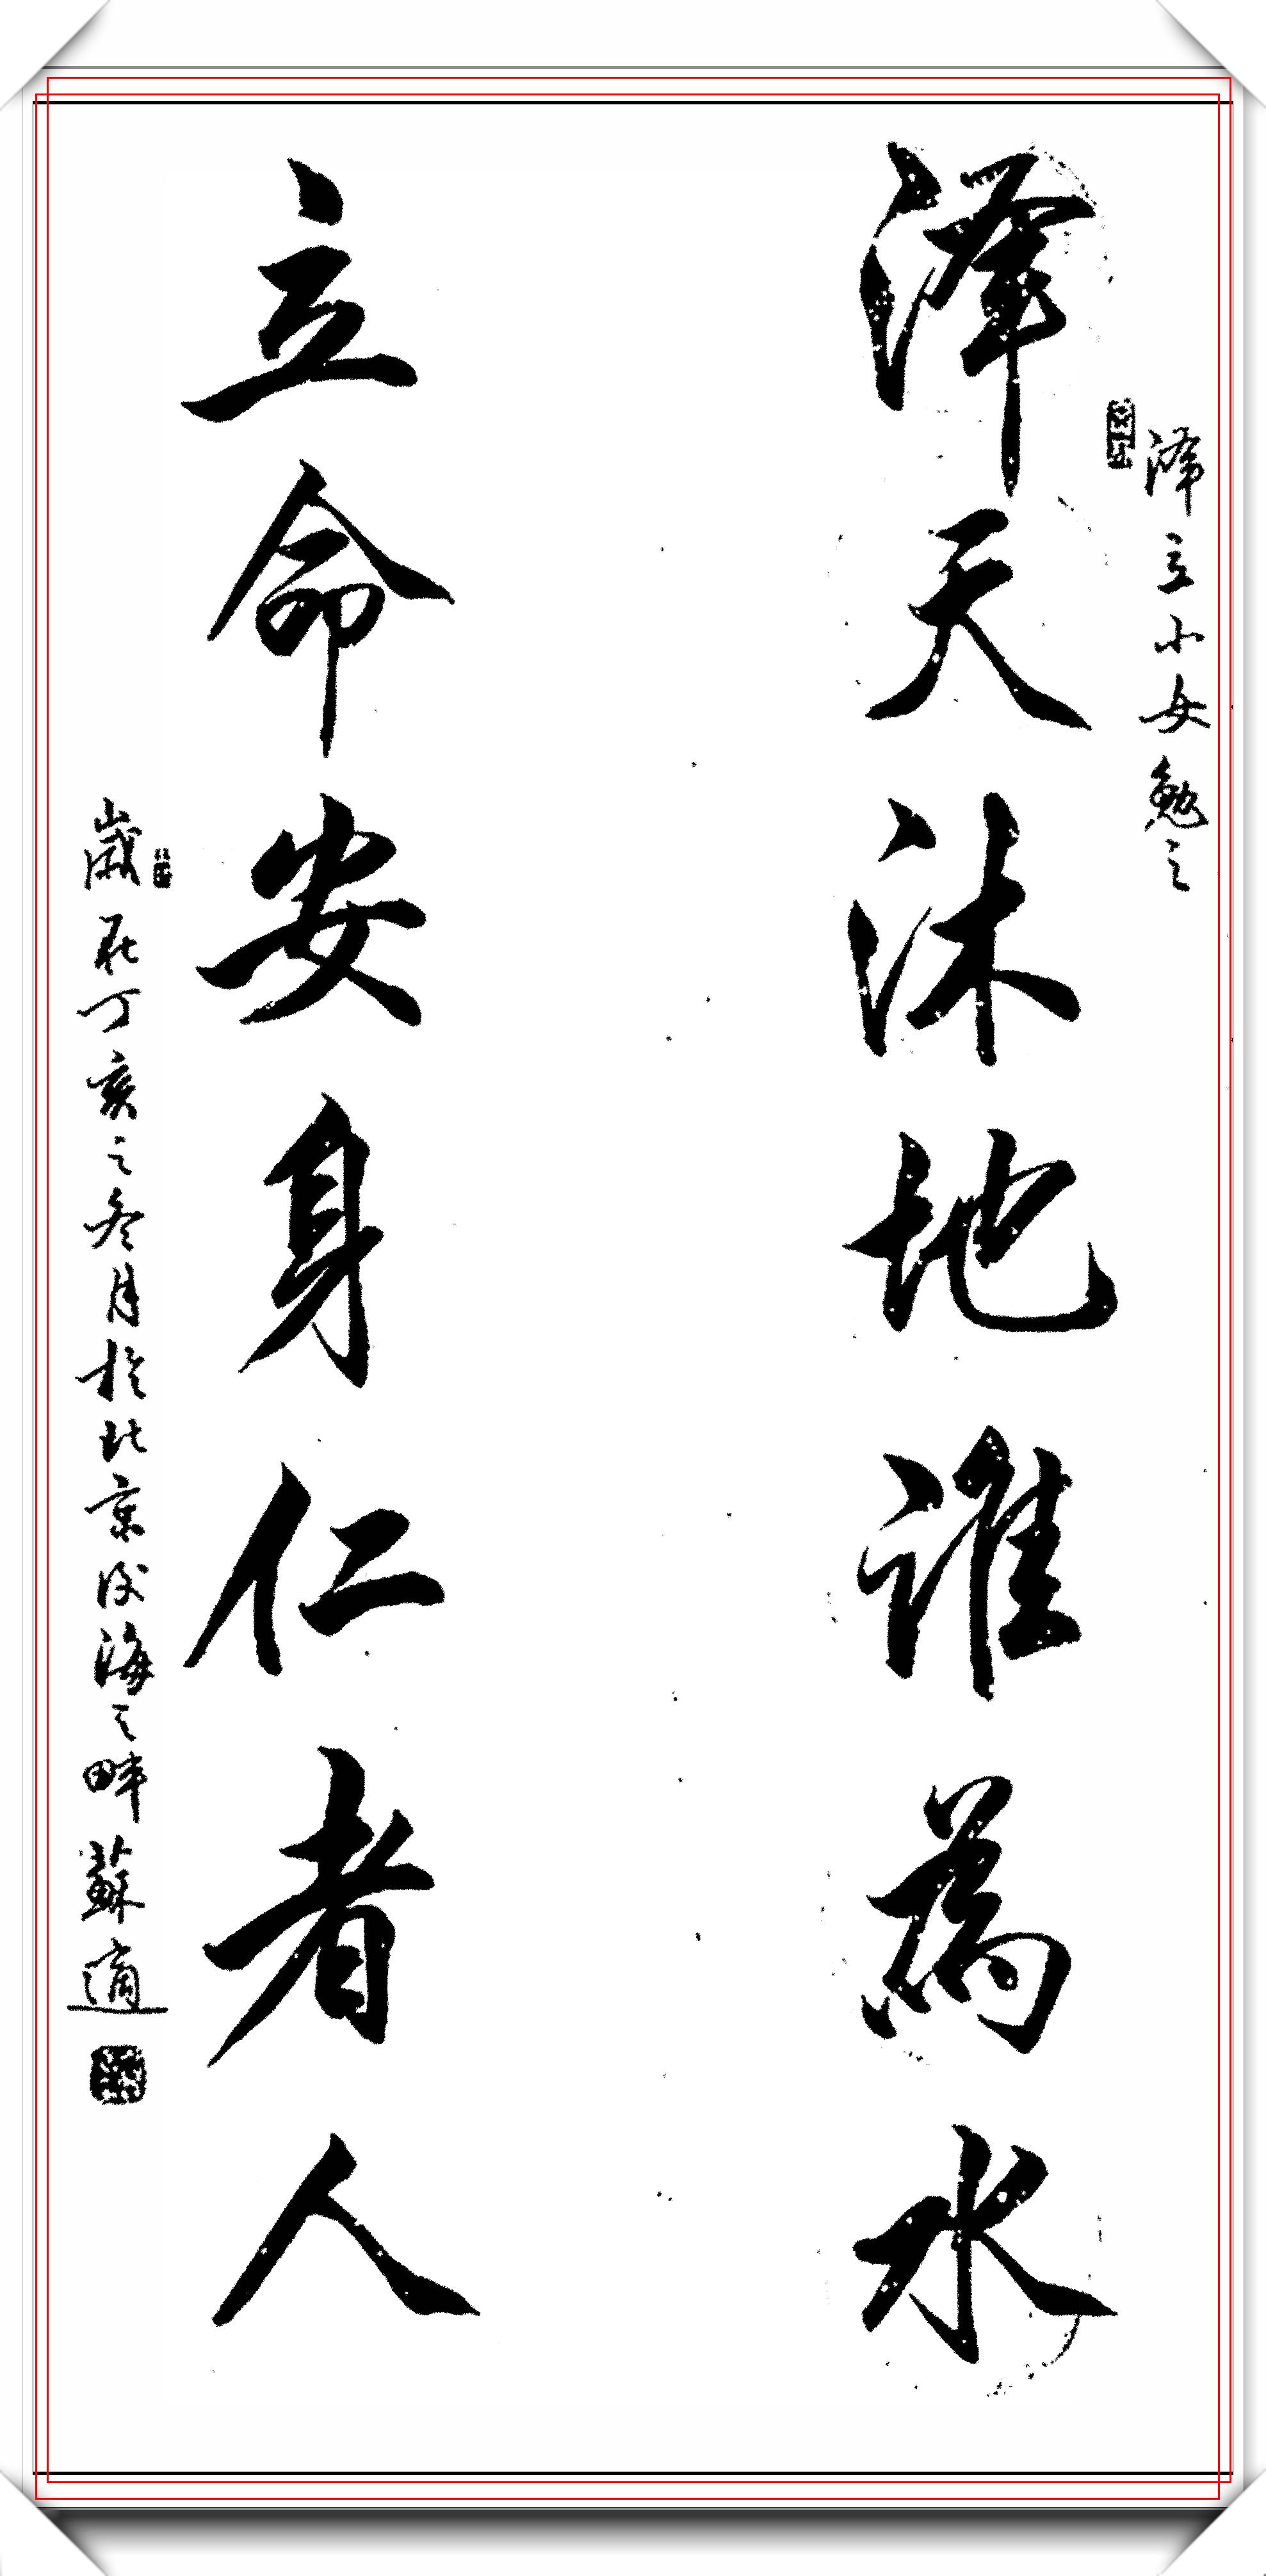 泽立小女勉之
泽天沐地谁為水
立命安身仁者人
歲在丁亥之冬月於北京后海之畔蘇適